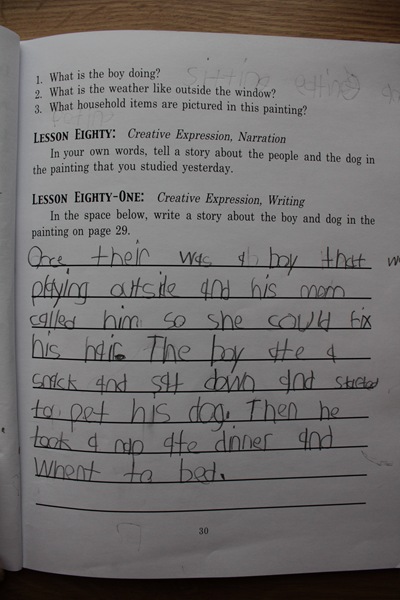 1. What is the boy doing?
2. What is the weather like outside the window?
3. What household items are pictured in this painting?
LESSON EIGHTY: Creative Expression, Narration
In your own words, tell a story about the people and the dog in
the painting that you studied yesterday.
LESSON EIGHTY-ONE: Creative Expression, Writing
In the space below, write a story about the boy and dog in the
painting on page 29.
Once their was a boy that w
playing outside and his mom
called him so she could fix
his hair. The boy ate a
snack and sat down and started
to pet his dog. Then he
took a nap ate dinner and
whent to bed.
30